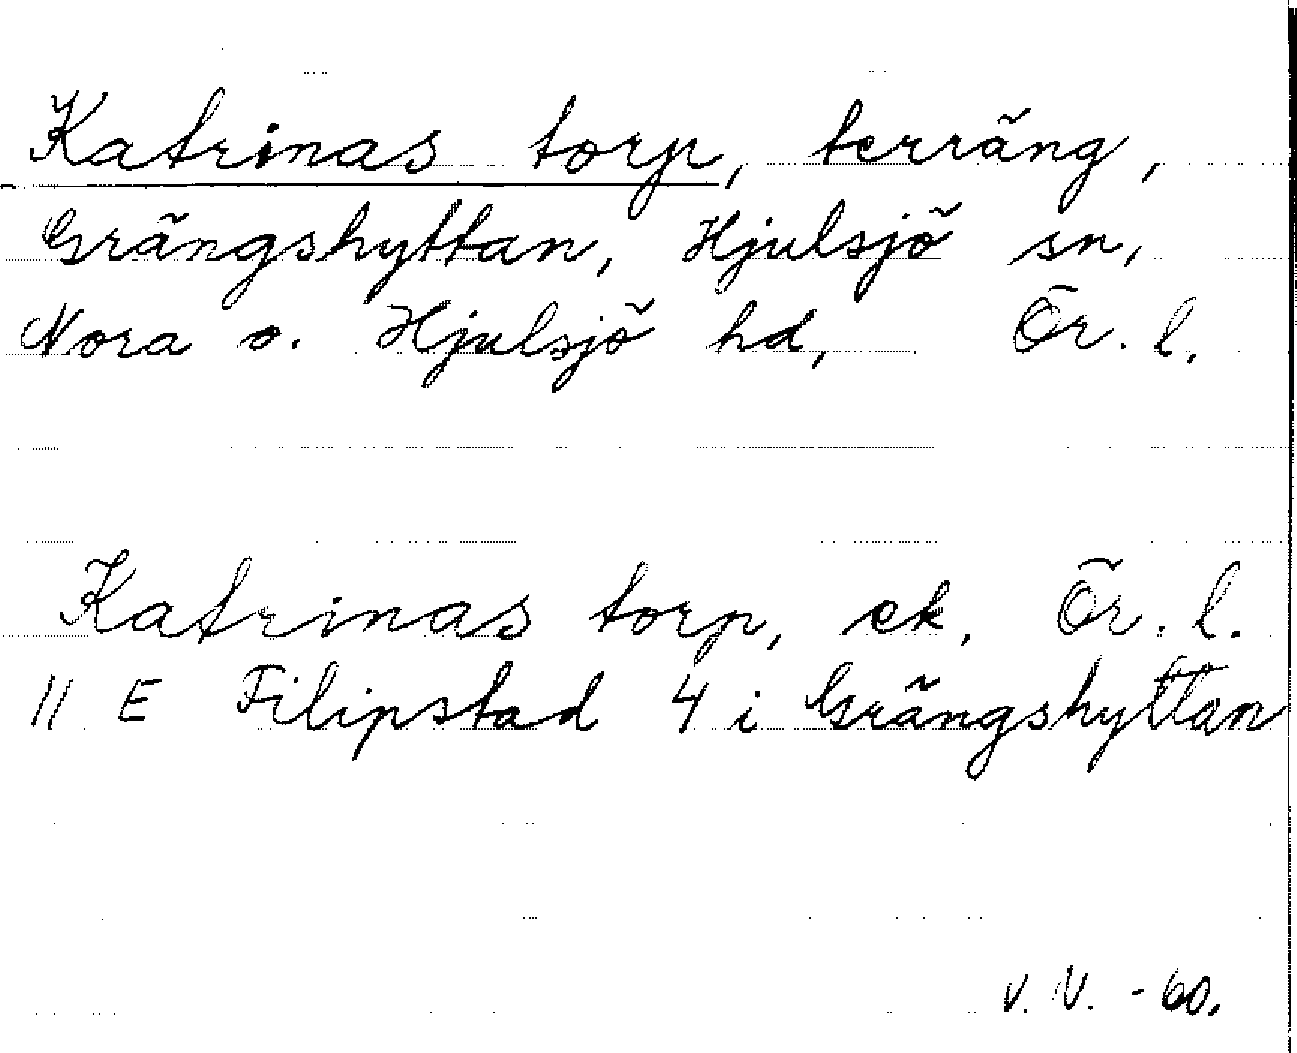 Katrinas torp, terräng,
Grängshyttan, Hjulsjö sn,
Nora o. Hjulsjö hd, Ör. l.
Katrinas torp, ek. Ör. l.
11 E Filipstad 4 i Grängshyttan
V. V. -60.